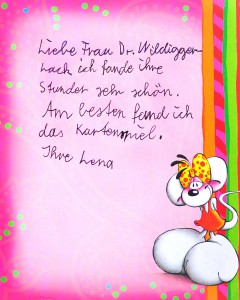 Liebe Frau Dr. Wildigger
lack ich fande ihre
Stunden sehr schön.
Am besten fand ich
das Kartenspiel.
Ihre Lena